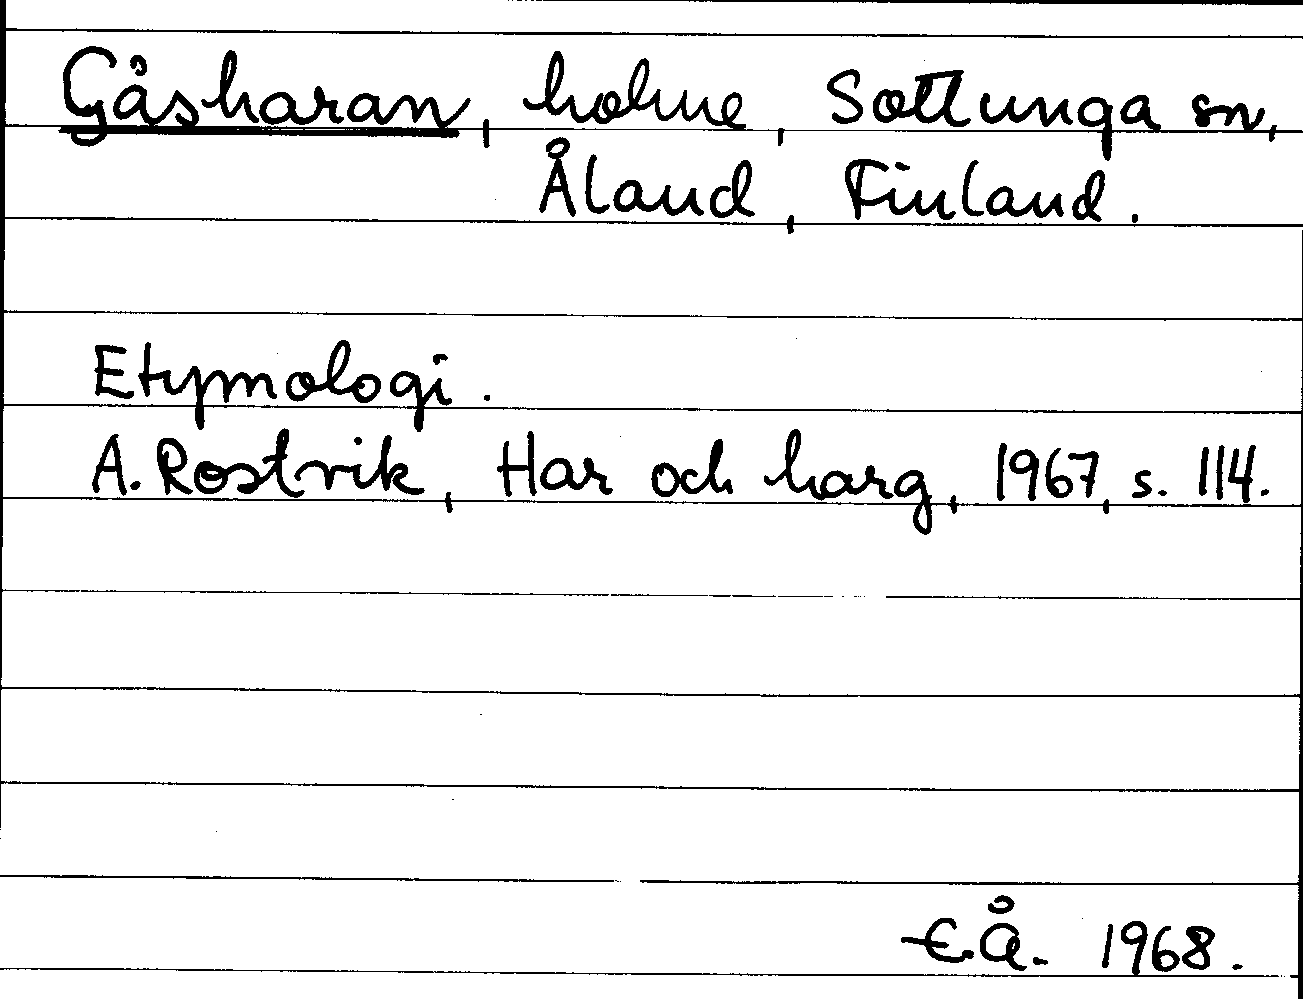 Gåsharan, holme, Sottunga sn,
Åland, Finland.
Etymologi.
A. Rostvik, Har och harg, 1967, s. 114.
E.Å. 1968.